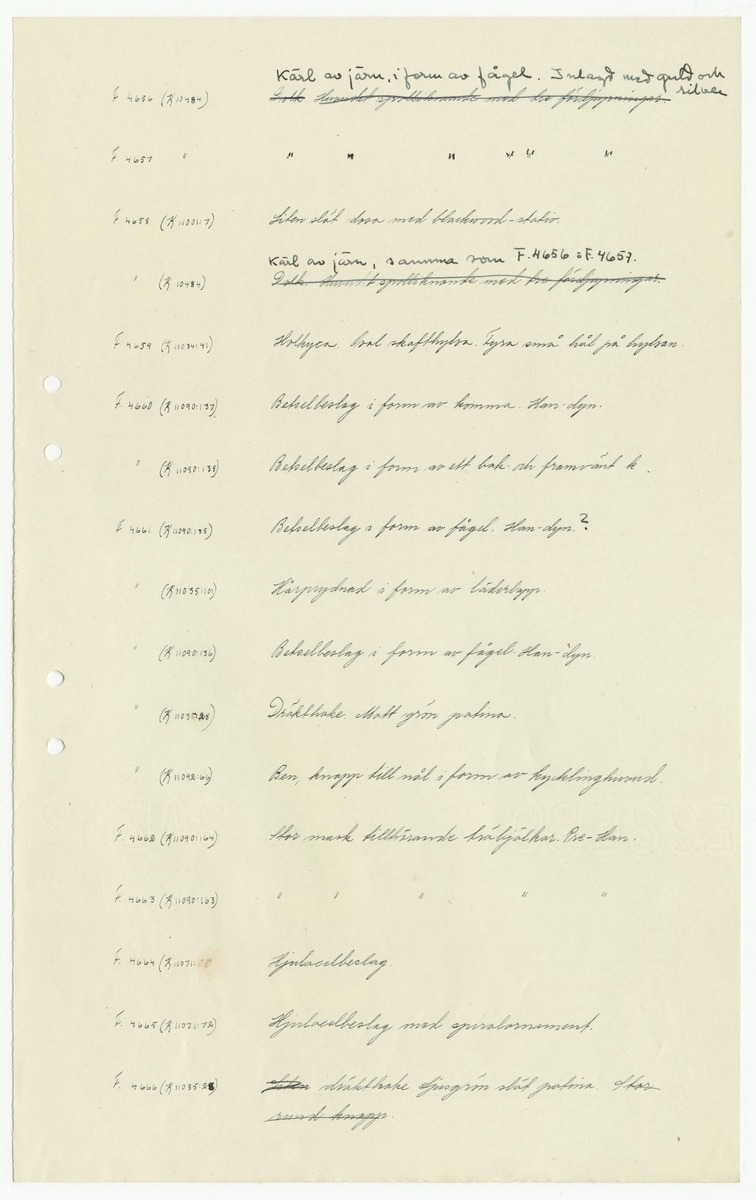 Kärl av järn, i form av fågel. Inlagd med guld och silver
F. 4656 (K 10484) Dolk Huvudet spottliknande med tre fördjupningar
F. 4657 " " " " " " "
F. 4658 (K 11001:7) Liten slät dosa med blackwood-stativ.
Kärl av järn, samma som F.4656 o F.4657.
" (K 10484) Dolk. Huvudet spottliknande med tre fördjupningar.
F. 4659 (K 11034:41) Holkyxa. Oval skafthylsa. Fyra små hål på hylsan.
F. 4660 (K 11090:137) Betselbeslag i form av komma. Han-dyn.
" (K 11090:138) Betselbeslag i form av ett bak- och framvänt k.
F. 4661 (K 11090:135) Betselbeslag i form av fågel. Han-dyn?
" (K 11035:101) Hårprydnad i form av läderlapp.
" (K 11090:136) Betselbeslag i form av fågel. Han-dyn.
" (K 11035:28) Dräkthake. Matt grön patina.
" (K 11092:66) Ben, knapp till nål i form av kycklinghuvud.
F. 4662 (K 11090:164) Stor mask tillhörande träbjälkar. Pre-Han.
F. 4663 (K 11090:163) " " " " "
F. 4664 (K 11071: Hjulaxelbeslag.
F. 4665 (K 11071:72) Hjulaxelbeslag med spiralornament.
F. 4666 (K 11035:28) Liten dräkthake ljusgrön slät patina. Stor
rund knapp.